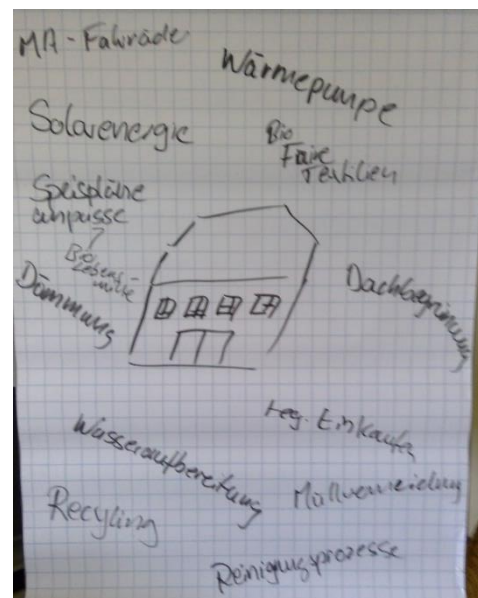 MA-Fahrräde
Wärmepumpe
Solarenergie
Bio
Faire
Textilien
Speispläne
anpasse
Bio
Lebens
mittel
Dämmung
Dachbegrünung
reg. Einkaufen
Wasseraufbereitung
Müllvermeidung
Recyling
Reinigungsprozesse